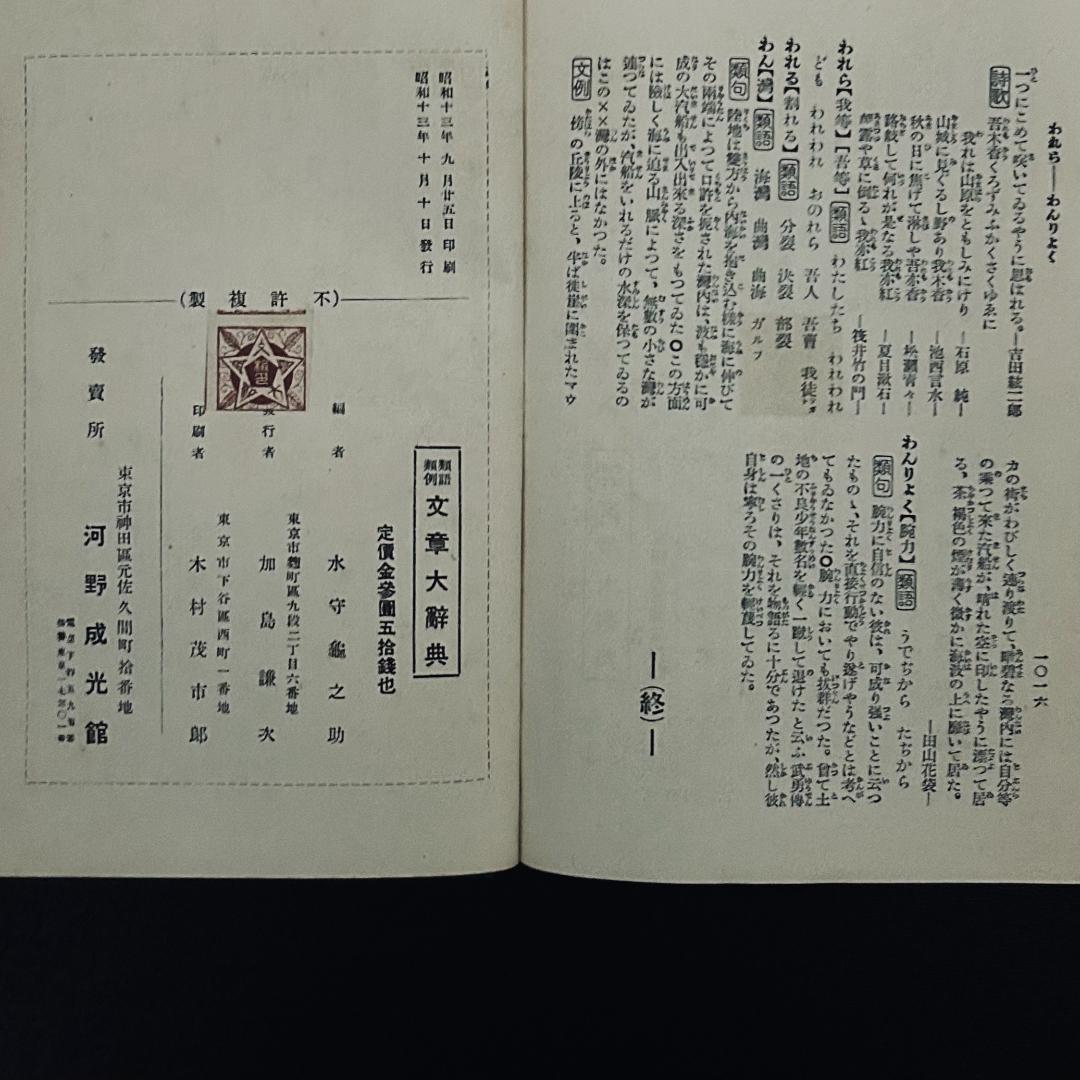 われら――わんりよく
一つにこめて咲いてゐるやうに思はれる。―吉田絃二郎
詩歌 吾木香くろずみふかくさくゆゑに
我れは山原をともしみにけり ―石原 純―
山城に見ぐるし野あり我木香 ―池西言水―
秋の日に焦げて淋しや吾亦香 ―松瀬青々―
路岐して何れか是なる我亦紅 ―夏目漱石―
雲や草に倒る丶我亦紅 ―筏井竹の門―
われら【我等】【吾等】 類語 わたしたち われわれ
ども われわれ おのれら 吾人 吾曹 我徒
われる【割れる】 類語 分裂 決裂 部裂
わん【灣】 類語 海灣 曲灣 曲海 ガルフ
類句 陸地は雙方から内海を抱き込む樣に海に伸びて
その兩端によつて口許を扼された灣内は、波も穩かに可
成の大汽船も出入出來る深さをもつてゐた〇この方面
には險しく海に迫る山脈によつて、無數の小さな灣が
連つてゐたが、汽船をいれるだけの水深を保つてゐるの
はこの××灣の外にはなかつた。
文例 傍の丘陵に上ると、半ば徒崖に圍まれたマウ
カの街がわびしく連り渡りて、暗碧なる灣内には自分等
の乘つて來た汽船が、晴れた空に印したやうに漂つて居
る、茶褐色の煙が薄く微かに海波の上に靡いて居た。
―田山花袋―
わんりよく【腕力】 類語 うでぢから たぢから
類句 腕力に自信のない彼は、可成り強いことに云つ
たもの丶、それを直接行動でやり遂げやうなどとは考へ
てもゐなかつた〇腕力においても拔群だつた。曾て土
地の不良少年數名を輕く一蹴して退けたと云ふ武勇傳
の一くさりは、それを物語るに十分であつたが、然し彼
自身は寧ろその腕力を輕蔑してゐた。
―(終)―
一〇一六
昭和十三年九月廿五日印刷
昭和十三年十月十日發行
(不許複製)
類語
類例
文章大辭典
定價金參圓五拾錢也
編者 水守龜之助
東京市麴町區九段二丁目六番地
發行者 加島謙次
東京市下谷區西町一番地
印刷者 木村茂市郎
東京市神田區元佐久間町拾番地
發賣所 河野成光館